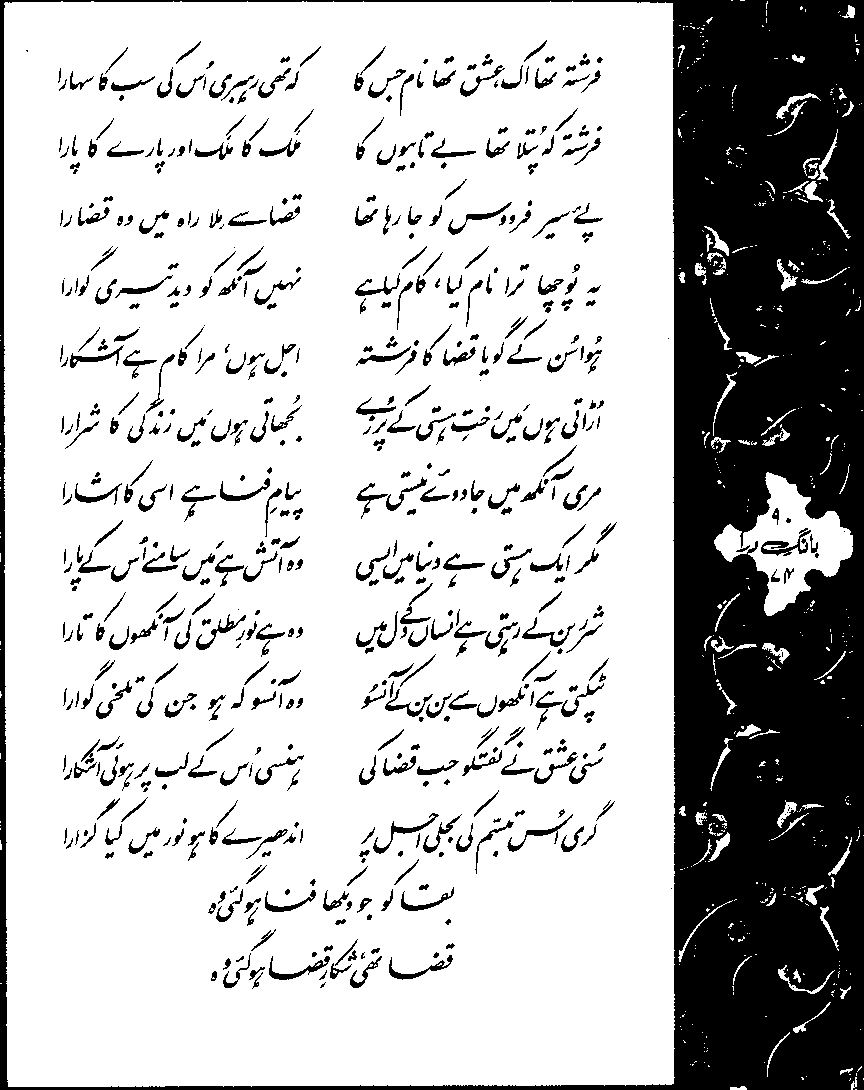 فرشتہ تھا اک عشق تھا نام جس کا کہ تھی رہبری اُس کی سب کا سہارا
فرشتہ کہ پُتلا تھا بے تابیوں کا مَلک کا مَلک اور پارے کا پارا
پئے سیر فردوس کو جا رہا تھا قضا سے مِلا راہ میں وہ قضا را
یہ پُوچھا ترا نام کیا، کام کیا ہے نہیں آنکھ کو دید تیری گوارا
ہُوا سُن کے گویا قضا کا فرشتہ اجل ہوں، مرا کام ہے آشکارا
اُڑاتی ہوں مَیں رختِ ہستی کے پُرزے بُجھاتی ہوں مَیں زندگی کا شرارا
مری آنکھ میں جادوئے نیستی ہے پیامِ فنا ہے اسی کا اشارا
مگر ایک ہستی ہے دنیا میں ایسی وہ آتش ہے مَیں سامنے اُس کے پارا
شرر بن کے رہتی ہے انساں کے دل میں وہ ہے نورِ مطلق کی آنکھوں کا تارا
ٹپکتی ہے آنکھوں سے بن بن کے آنسو وہ آنسو کہ ہو جن کی تلخی گوارا
سُنی عشق نے گفتگو جب قضا کی ہنسی اُس کے لب پر ہوئی آشکارا
گری اُس تبسّم کی بجلی اجل پر اندھیرے کا ہو نور میں کیا گزارا
بقا کو جو دیکھا فنا ہو گئی وہ
قضا تھی، شکارِ قضا ہو گئی وہ
۹۰
بانگِ درا
۷۴